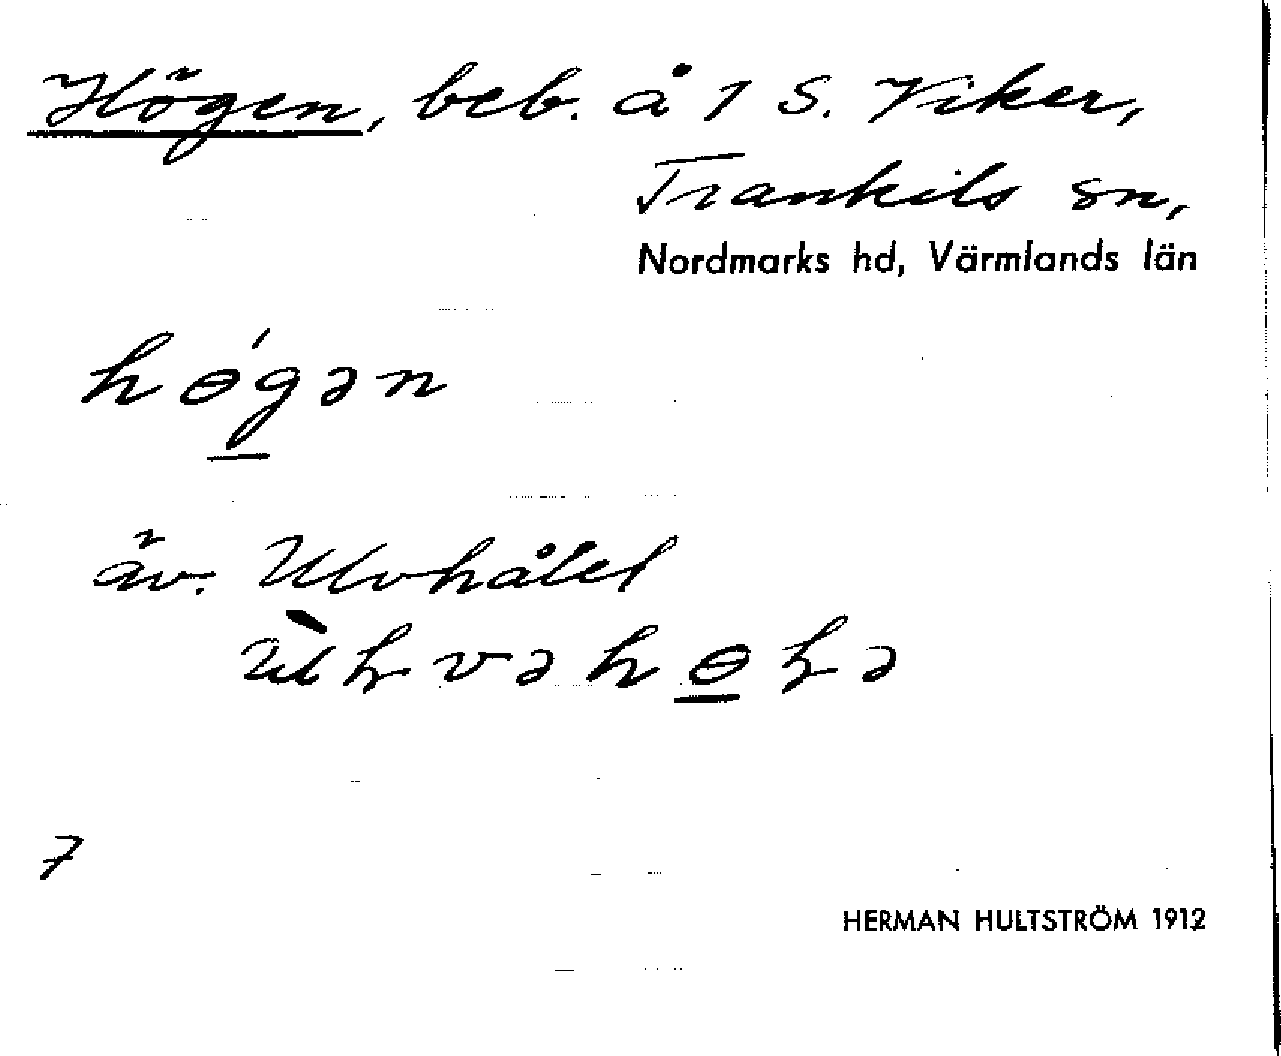 Högen, beb. å 1 S. Viker,
Trankils sn,
Nordmarks hd, Värmlands län
hɵ́gən
äv. Ulvhålet
7
HERMAN HULTSTRÖM 1912